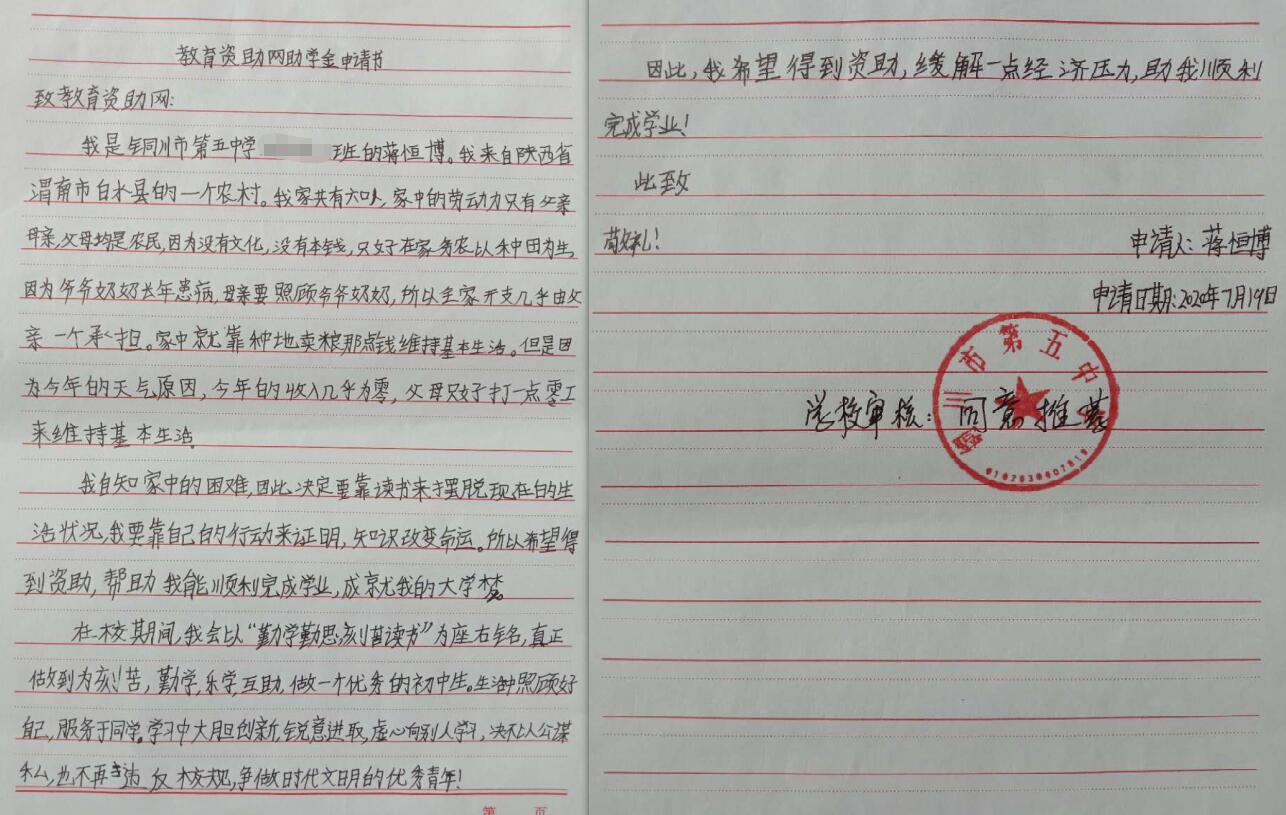 教育资助网助学金申请书
致教育资助网:
我是铜川市第五中学 班的蒋恒博。我来自陕西省
渭南市白水县的一个农村。我家共有六口人,家中的劳动力只有父亲
母亲,父母均是农民,因为没有文化,没有本钱,只好在家务农以种田为生
因为爷爷奶奶长年患病,母亲要照顾爷爷奶奶,所以全家开支几乎由父
亲一个承担。家中就靠种地卖粮那点钱维持基本生活。但是因
为今年的天气原因,今年的收入几乎为零,父母只好打一点零工
来维持基本生活。
我自知家中的困难,因此决定要靠读书来摆脱现在的生
活状况,我要靠自己的行动来证明,知识改变命运。所以希望得
到资助,帮助我能顺利完成学业,成就我的大学梦。
在校期间,我会以“勤学勤思,刻苦读书”为座右铭,真正
做到为刻苦,勤学,乐学,互助,做一个优秀的初中生。生活中照顾好
自己,服务于同学。学习中大胆创新,锐意进取,虚心向别人学习,决不以公谋
私,也不再违反校规,争做时代文明的优秀青年!
第 页
因此,我希望得到资助,缓解一点经济压力,助我顺利
完成学业!
此致
敬礼!
申请人:蒋恒博
申请日期:2020年7月19日
铜川市第五中学
学校审核:同意推荐